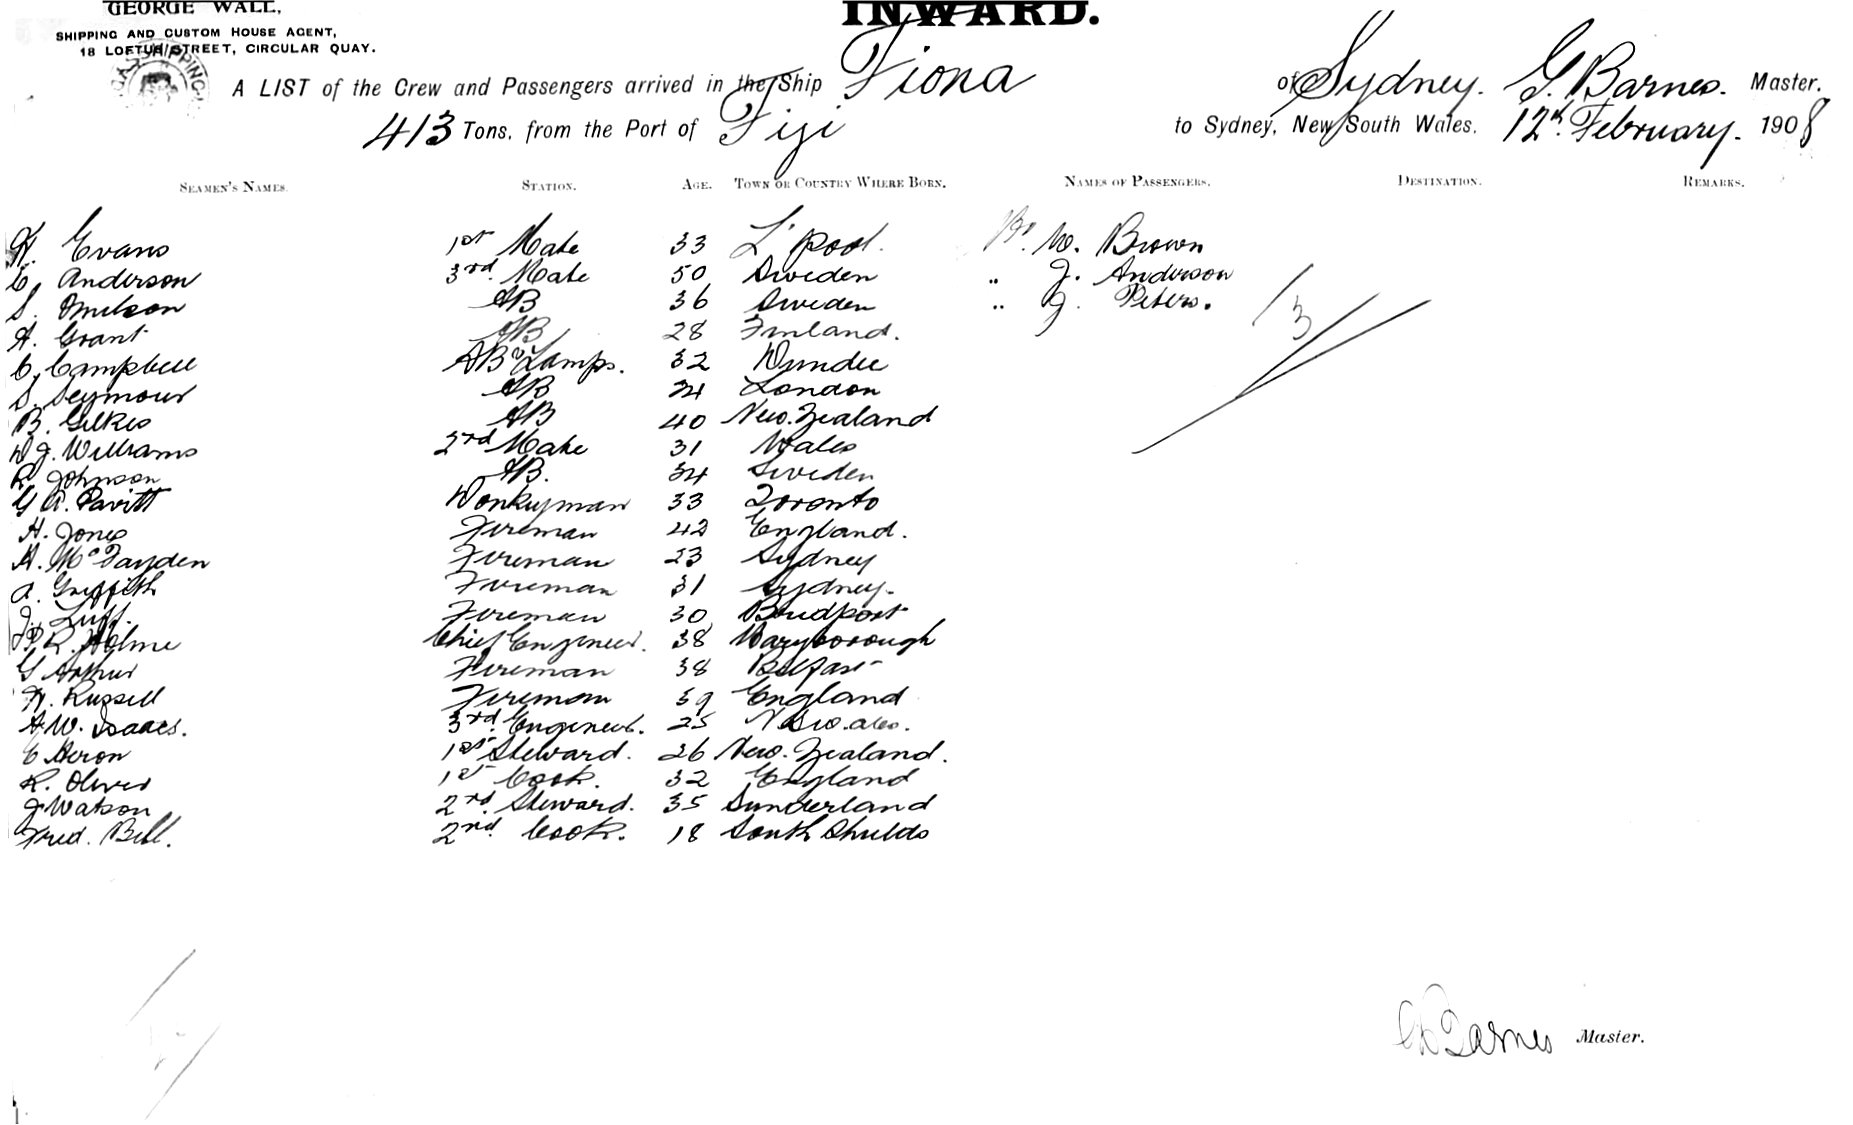 GEORGE WALL,
SHIPPING AND CUSTOM HOUSE AGENT,
18 LOFTUS STREET, CIRCULAR QUAY.
INWARD.
A LIST of the Crew and Passengers arrived in the Ship Fiona of Sydney. G. Barnes. Master.
413 Tons, from the Port of Fiji to Sydney, New South Wales. 12th February. 1908
SEAMEN'S NAMES. STATION. AGE. TOWN OR COUNTRY WHERE BORN. NAMES OF PASSENGERS. DESTINATION. REMARKS.
H. Evans 1st Mate 33 L'pool. Mr. W. Brown
C. Anderson 3rd. Mate 50 Sweden " J. Anderson
S. AB 36 Sweden " J. Peters.
A. Grant AB 28 Finland. 3
C. Campbell AB & Lamps. 32 Dundee
S. Seymour AB 24 London
B. Gilkes AB 40 New. Zealand
D J. Williams 2nd Mate 31 Wales
R. Johnson AB. 34 Sweden
G A. Pavitt Donkeyman 33 Toronto
H. Jones Fireman 42 England.
A. McFayden Fireman 23 Sydney
A. Griffith Fireman 31 Sydney.
J. Luff. Fireman 30 Bridport
R. Holme Chief Engineer. 38 Maryborough
G Arthur Fireman 38 Belfast
H. Russell Fireman 39 England
A W. Isaacs. 3rd. Engineer. 25 N S W.ales.
E Heron 1st Steward. 26 New. Zealand.
R. Oliver 1st Cook. 32 England
J Watson 2nd. Steward. 35 Sunderland
Fred. Bell. 2nd. Cook. 18 South Shields
G Barnes Master.